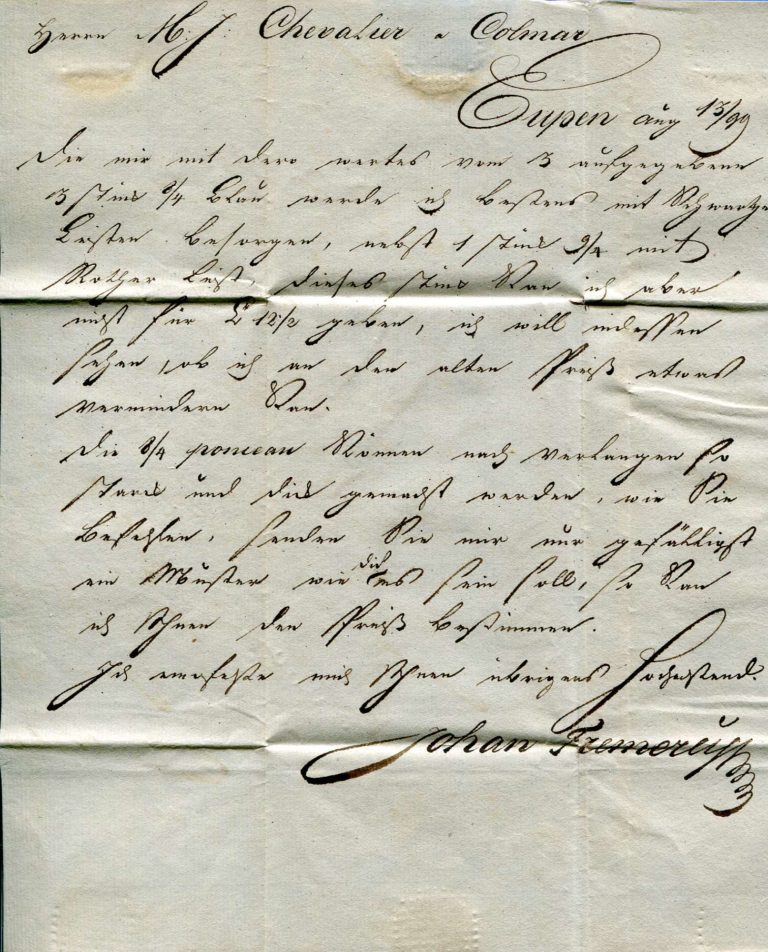 Herrn M. J. Chevalier a Colmar
Eupen aug 13/99
Die mir mit dero wertes vom 3 aufgegebene
3 stück 9/4 Blau werde ich bestens mit Schwartze
Leisten besorgen, nebst 1 stück 9/4 mit
Rother Leist, dieses stück Kan ich aber
nicht für 12 1/2 geben, ich will indessen
sehen, ob ich an den alten Preiß etwas
vermindern Kan.
Die 8/4 ponceau Können nach verlangen so
starck und dick gemacht werden, wie Sie
befehlen, senden Sie mir nur gefälligst
ein Muster wie dick es sein soll, so Kan
ich Ihnen den Preiß bestimmen.
Ich empfehle mich Ihnen übrigens Hochachtend.
Johan Fremereÿ